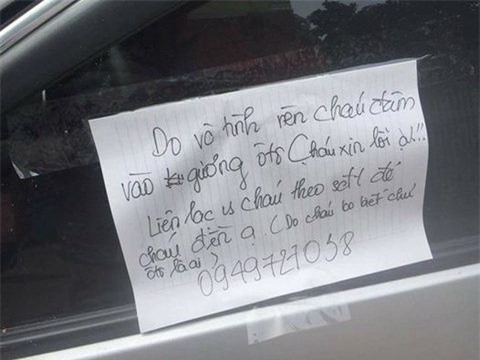 Do vô tình nên cháu đâm
vào gương ôtô Cháu xin lỗi ạ!!
Liên lạc vs cháu theo sđt để
cháu đền ạ (Do cháu ko biết chủ
ôtô là ai)
0949727058